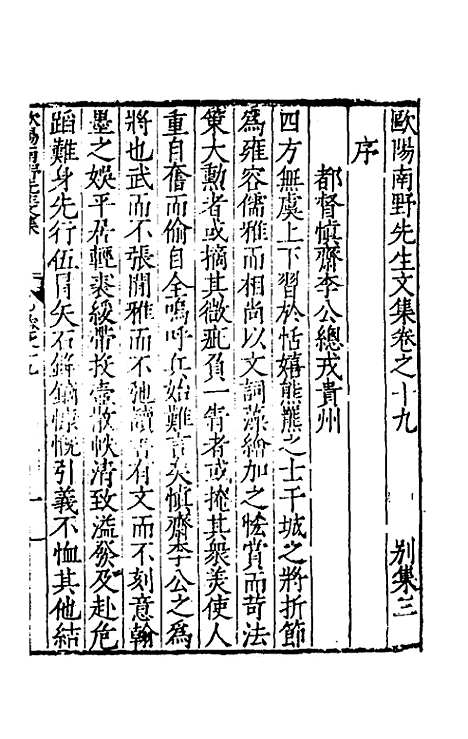 歐陽南野先生文集卷之十九 別集三
序
都督慎齋李公總戎貴州
四方無虞上下習於恬嬉熊羆之士干城之將折節
爲雍容儒雅而相尚以文詞藻繪加之恡賞而苛法
策大勲者或摘其微疵負一眚者或掩其衆美使人
重自奮而偷自全嗚呼兵始難言矣慎齋李公之爲
將也武而不張閒雅而不弛讀書有文而不刻意翰
墨之娛平居輕裘緩帶投壺散帙清致溢發及赴危
蹈難身先行伍冐矢石鋒鏑慷慨引義不恤其他結
歐陽南野先生文集